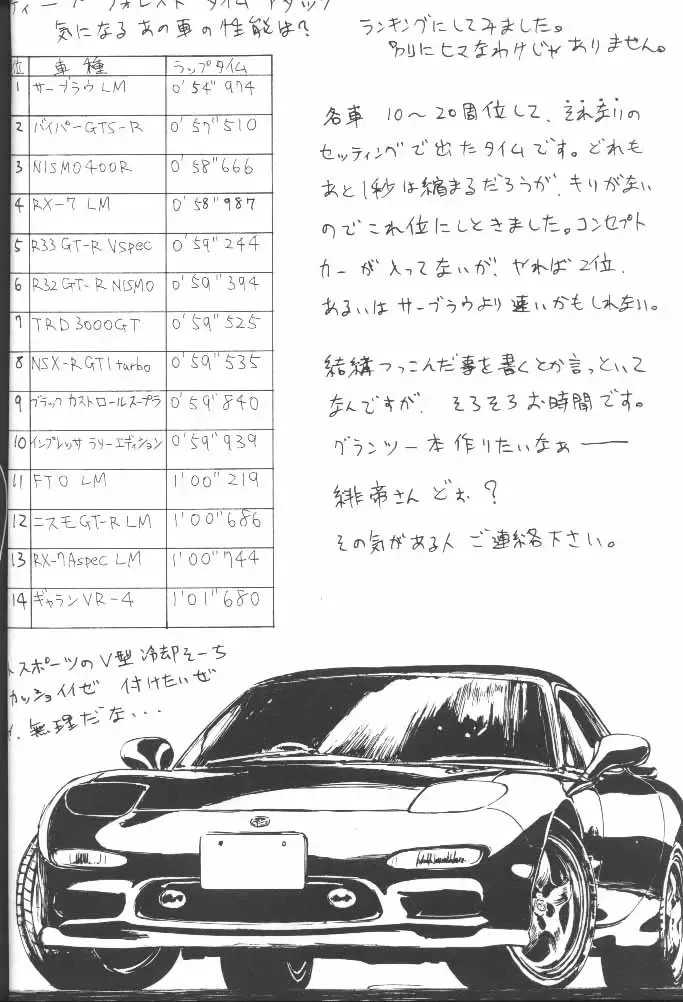 ディープ フォレスト タイムアタック
気になるあの車の性能は?
ランキングにしてみました。
別にヒマなわけじゃありません。
位 車種 ラップタイム
1 サーブラウLM 0'54"974
2 バイパーGTS-R 0'57"510
3 NISMO400R 0'58"666
4 RX-7 LM 0'58"987
5 R33 GT-R Vspec 0'59"244
6 R32 GT-R NISMO 0'59"394
7 TRD3000GT 0'59"525
8 NSX-R GT1 turbo 0'59"535
9 ブラック カストロールスープラ 0'59"840
10 インプレッサ ラリーエディション 0'59"939
11 FTO LM 1'00"219
12 ニスモGT-R LM 1'00"686
13 RX-7 Aspec LM 1'00"744
14 ギャランVR-4 1'01"680
各車 10〜20周位して、それなりの
セッティングで出たタイムです。どれも
あと1秒は縮まるだろうが、キリがない
のでこれ位にしときました。コンセプト
カーが入ってないが、やれば2位、
あるいはサーブラウより速いかもしれない。
結構つっこんだ事を書くとか言っといて
なんですが、そろそろお時間です。
グランツー本作りたいなぁ――
緋帝さん どぉ?
その気がある人 ご連絡下さい。
スポーツのV型冷却そーち
カッショイイゼ 付けたいぜ
無理だな...